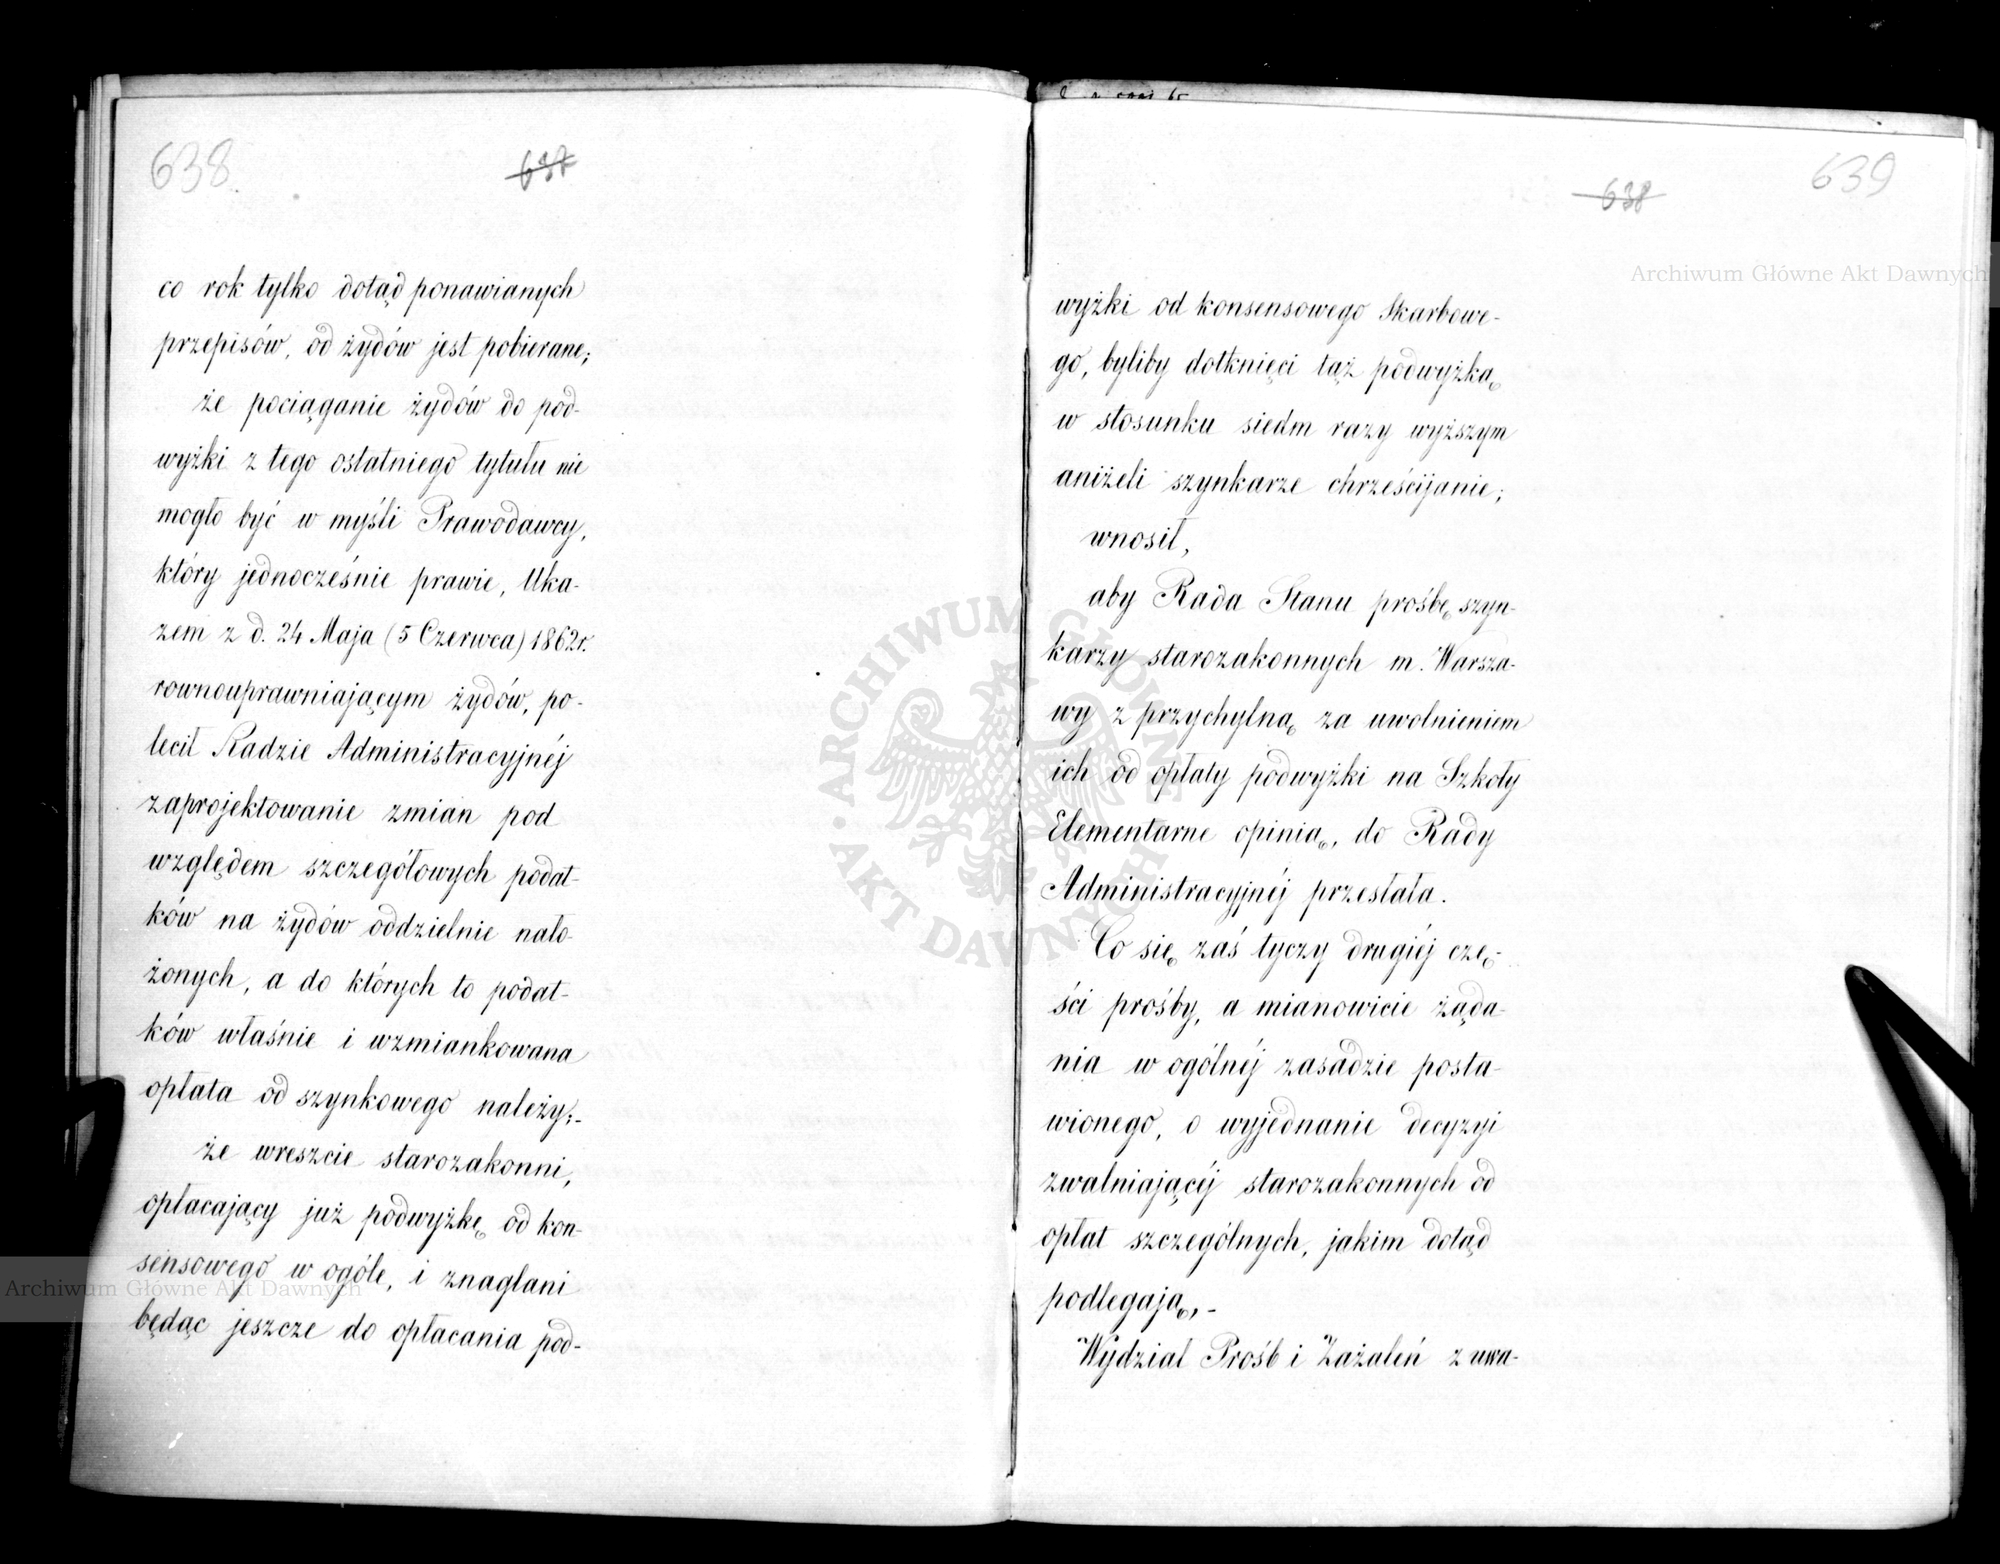 638
637
co rok tylko dotąd ponawianych
przepisów, od żydów jest pobierane;
że pociąganie żydów do pod-
wyżki z tego ostatniego tytułu nie
mogło być w myśli Prawodawcy,
który jednocześnie prawie, Uka-
zem z d. 24 Maja (5 Czerwca) 1862r.
rownouprawniającym żydów, po-
lecił Radzie Administracyjnéj
zaprojektowanie zmian pod
względem szczegółowych podat-
ków na żydów oddzielnie nało-
żonych, a do których to podat-
ków właśnie i wzmiankowana
opłata od szynkowego należy;-
że wreszcie starozakonni,
opłacający już podwyżkę od kon-
sensowego w ogóle, i znaglani
będąc jeszcze do opłacania pod-
638
639
wyżki od konsensowego Skarbowe-
go, byliby dotknięci tąż podwyżką
w stosunku siedm razy wyższym
aniżeli szynkarze chrześcijanie;
wnosił,
aby Rada Stanu prośbę szyn-
karzy starozakonnych m. Warsza-
wy z przychylną za uwolnieniem
ich od opłaty podwyżki na Szkoły
Elementarne opinią, do Rady
Administracyjnéj przesłała.
Co się zaś tyczy drugiéj czę-
ści prośby, a mianowicie żąda-
nia w ogólnéj zasadzie posta-
wionego, o wyjednanie decyzyi
zwalniającéj starozakonnych od
opłat szczególnych, jakim dotąd
podlegają,-
Wydział Prośb i Zażaleń z uwa-
Archiwum Główne Akt Dawnych
Archiwum Główne Akt Dawnych
ARCHIWUM GŁÓWNE
AKT DAWNYCH